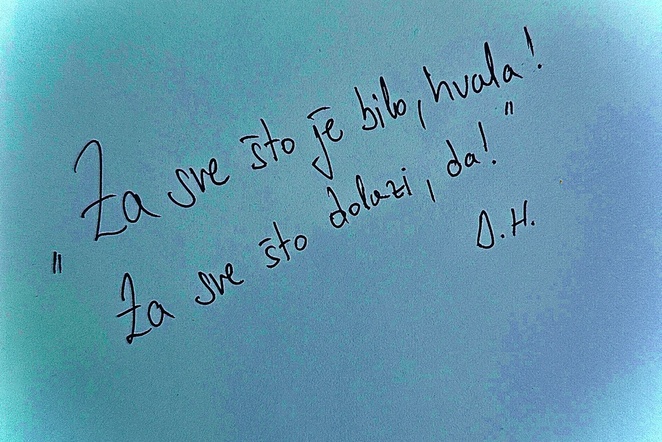 Za sve što je bilo, hvala!
" Za sve što dolazi, da! "
D.H.